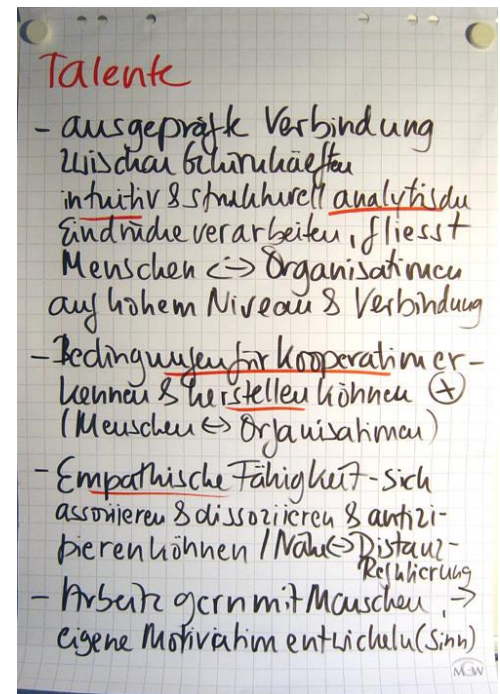 Talente
- ausgeprägte Verbindung
zwischen Gehirnhälften
intuitiv & strukturell analytische
Eindrücke verarbeiten, fliesst
Menschen <-> Organisationen
auf hohem Niveau & Verbindung
- Bedingungen für Kooperation er-
kennen & herstellen können +
(Menschen <-> Organisationen)
- Empathische Fähigkeit - sich
assoziieren & dissoziieren & antizi-
pieren können / Nähe <-> Distanz-
Regulierung
- Arbeite gern mit Menschen, ->
eigene Motivation entwickeln (Sinn)
MGW